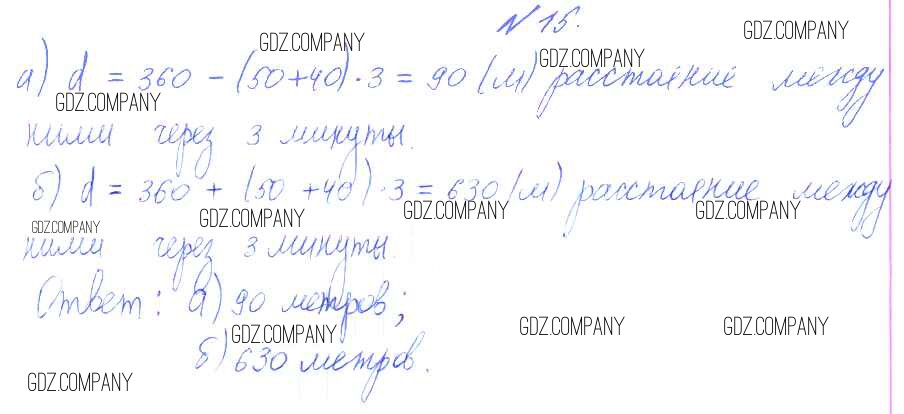 № 15.
а) d = 360 - (50+40) · 3 = 90 (м) расстояние между
ними через 3 минуты.
б) d = 360 + (50 +40) · 3 = 630 (м) расстояние между
ними через 3 минуты.
Ответ: а) 90 метров;
б) 630 метров.
GDZ.COMPANY
GDZ.COMPANY
GDZ.COMPANY
GDZ.COMPANY
GDZ.COMPANY
GDZ.COMPANY
GDZ.COMPANY
GDZ.COMPANY
GDZ.COMPANY
GDZ.COMPANY
GDZ.COMPANY
GDZ.COMPANY